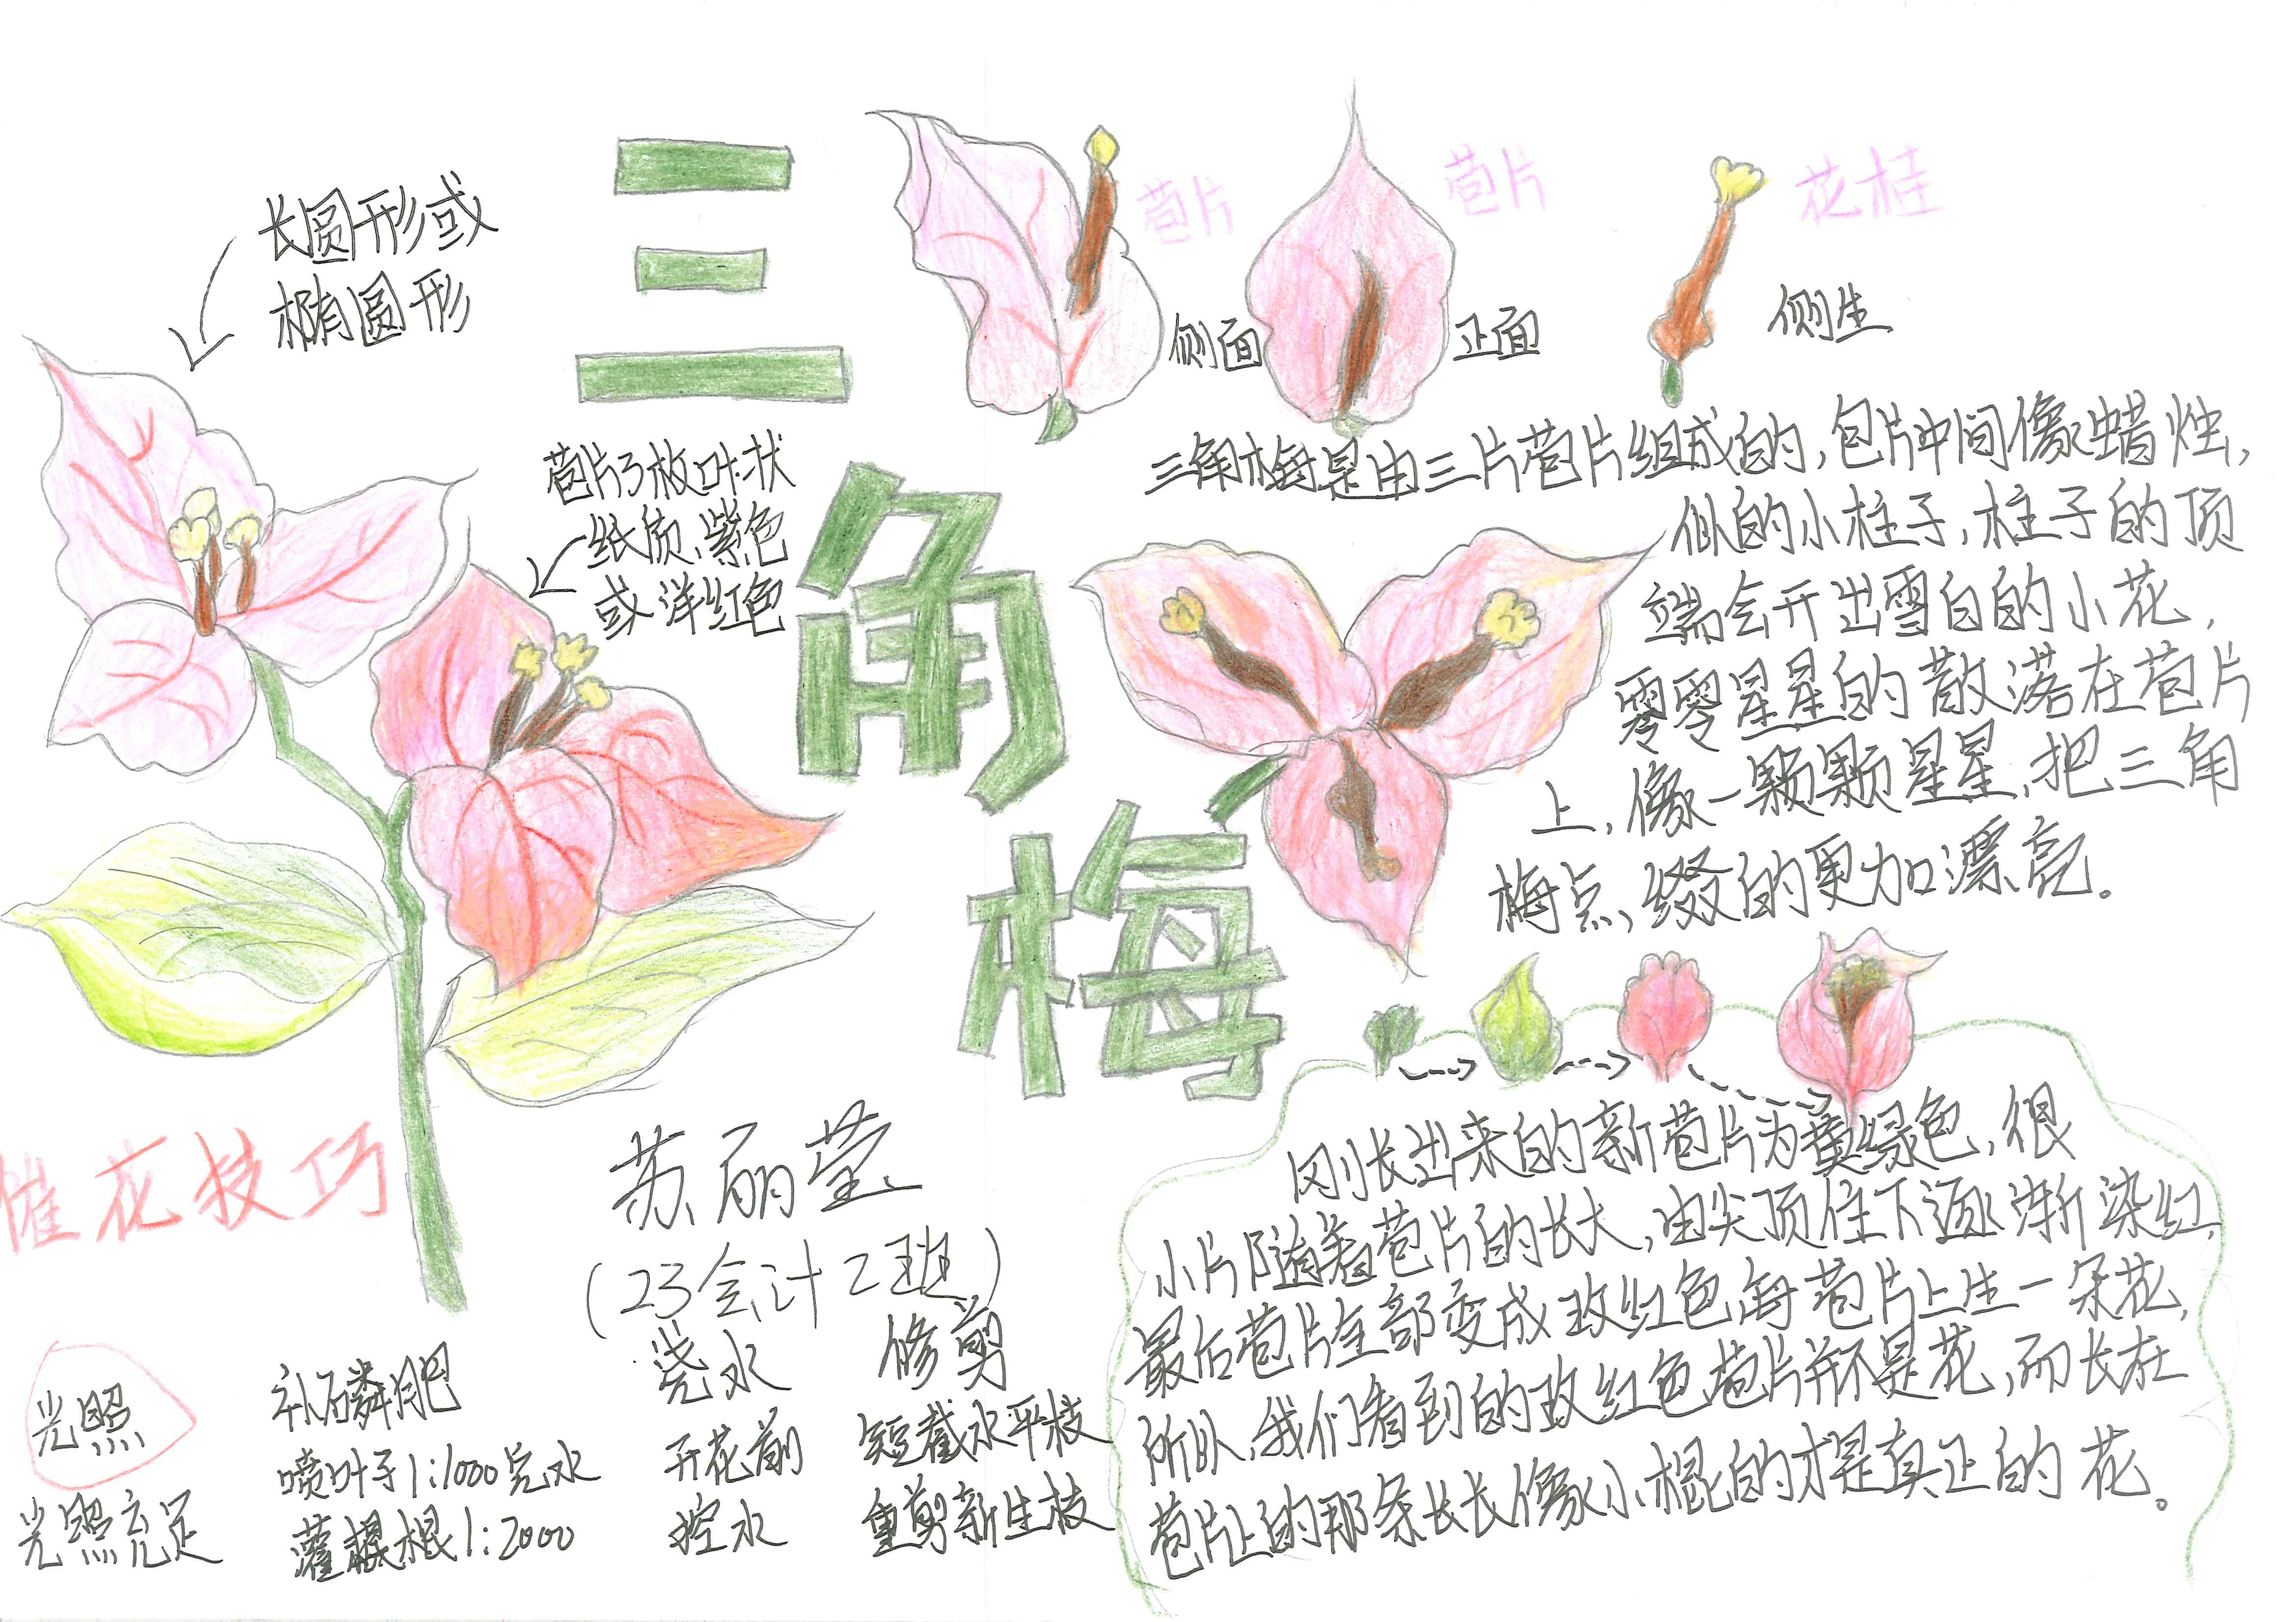 三角梅
长圆形或
椭圆形
苞片3枚叶状
纸质、紫色
或洋红色
苞片
侧面
苞片
正面
花桂
侧生
三角梅是由三片苞片组成的,包片中间像蜡烛,
似的小柱子,柱子的顶
端会开出雪白的小花,
零零星星的散落在苞片
上,像一颗颗星星,把三角
梅点缀的更加漂亮。
刚长出来的新苞片为黄绿色,很
小片随着苞片的长大,由尖顶住下逐渐染红,
最后苞片全部变成玫红色每苞片上生一朵花,
所以,我们看到的玫红色苞片并不是花,而长在
苞片上的那条长长像小棍的才是真正的花。
苏丽莹
(23会计2班)
催花技巧
光照
光照充足
补磷肥
喷叶子1:1000兑水
灌根1:2000
浇水
开花前
控水
修剪
短截水平枝
重剪新生枝